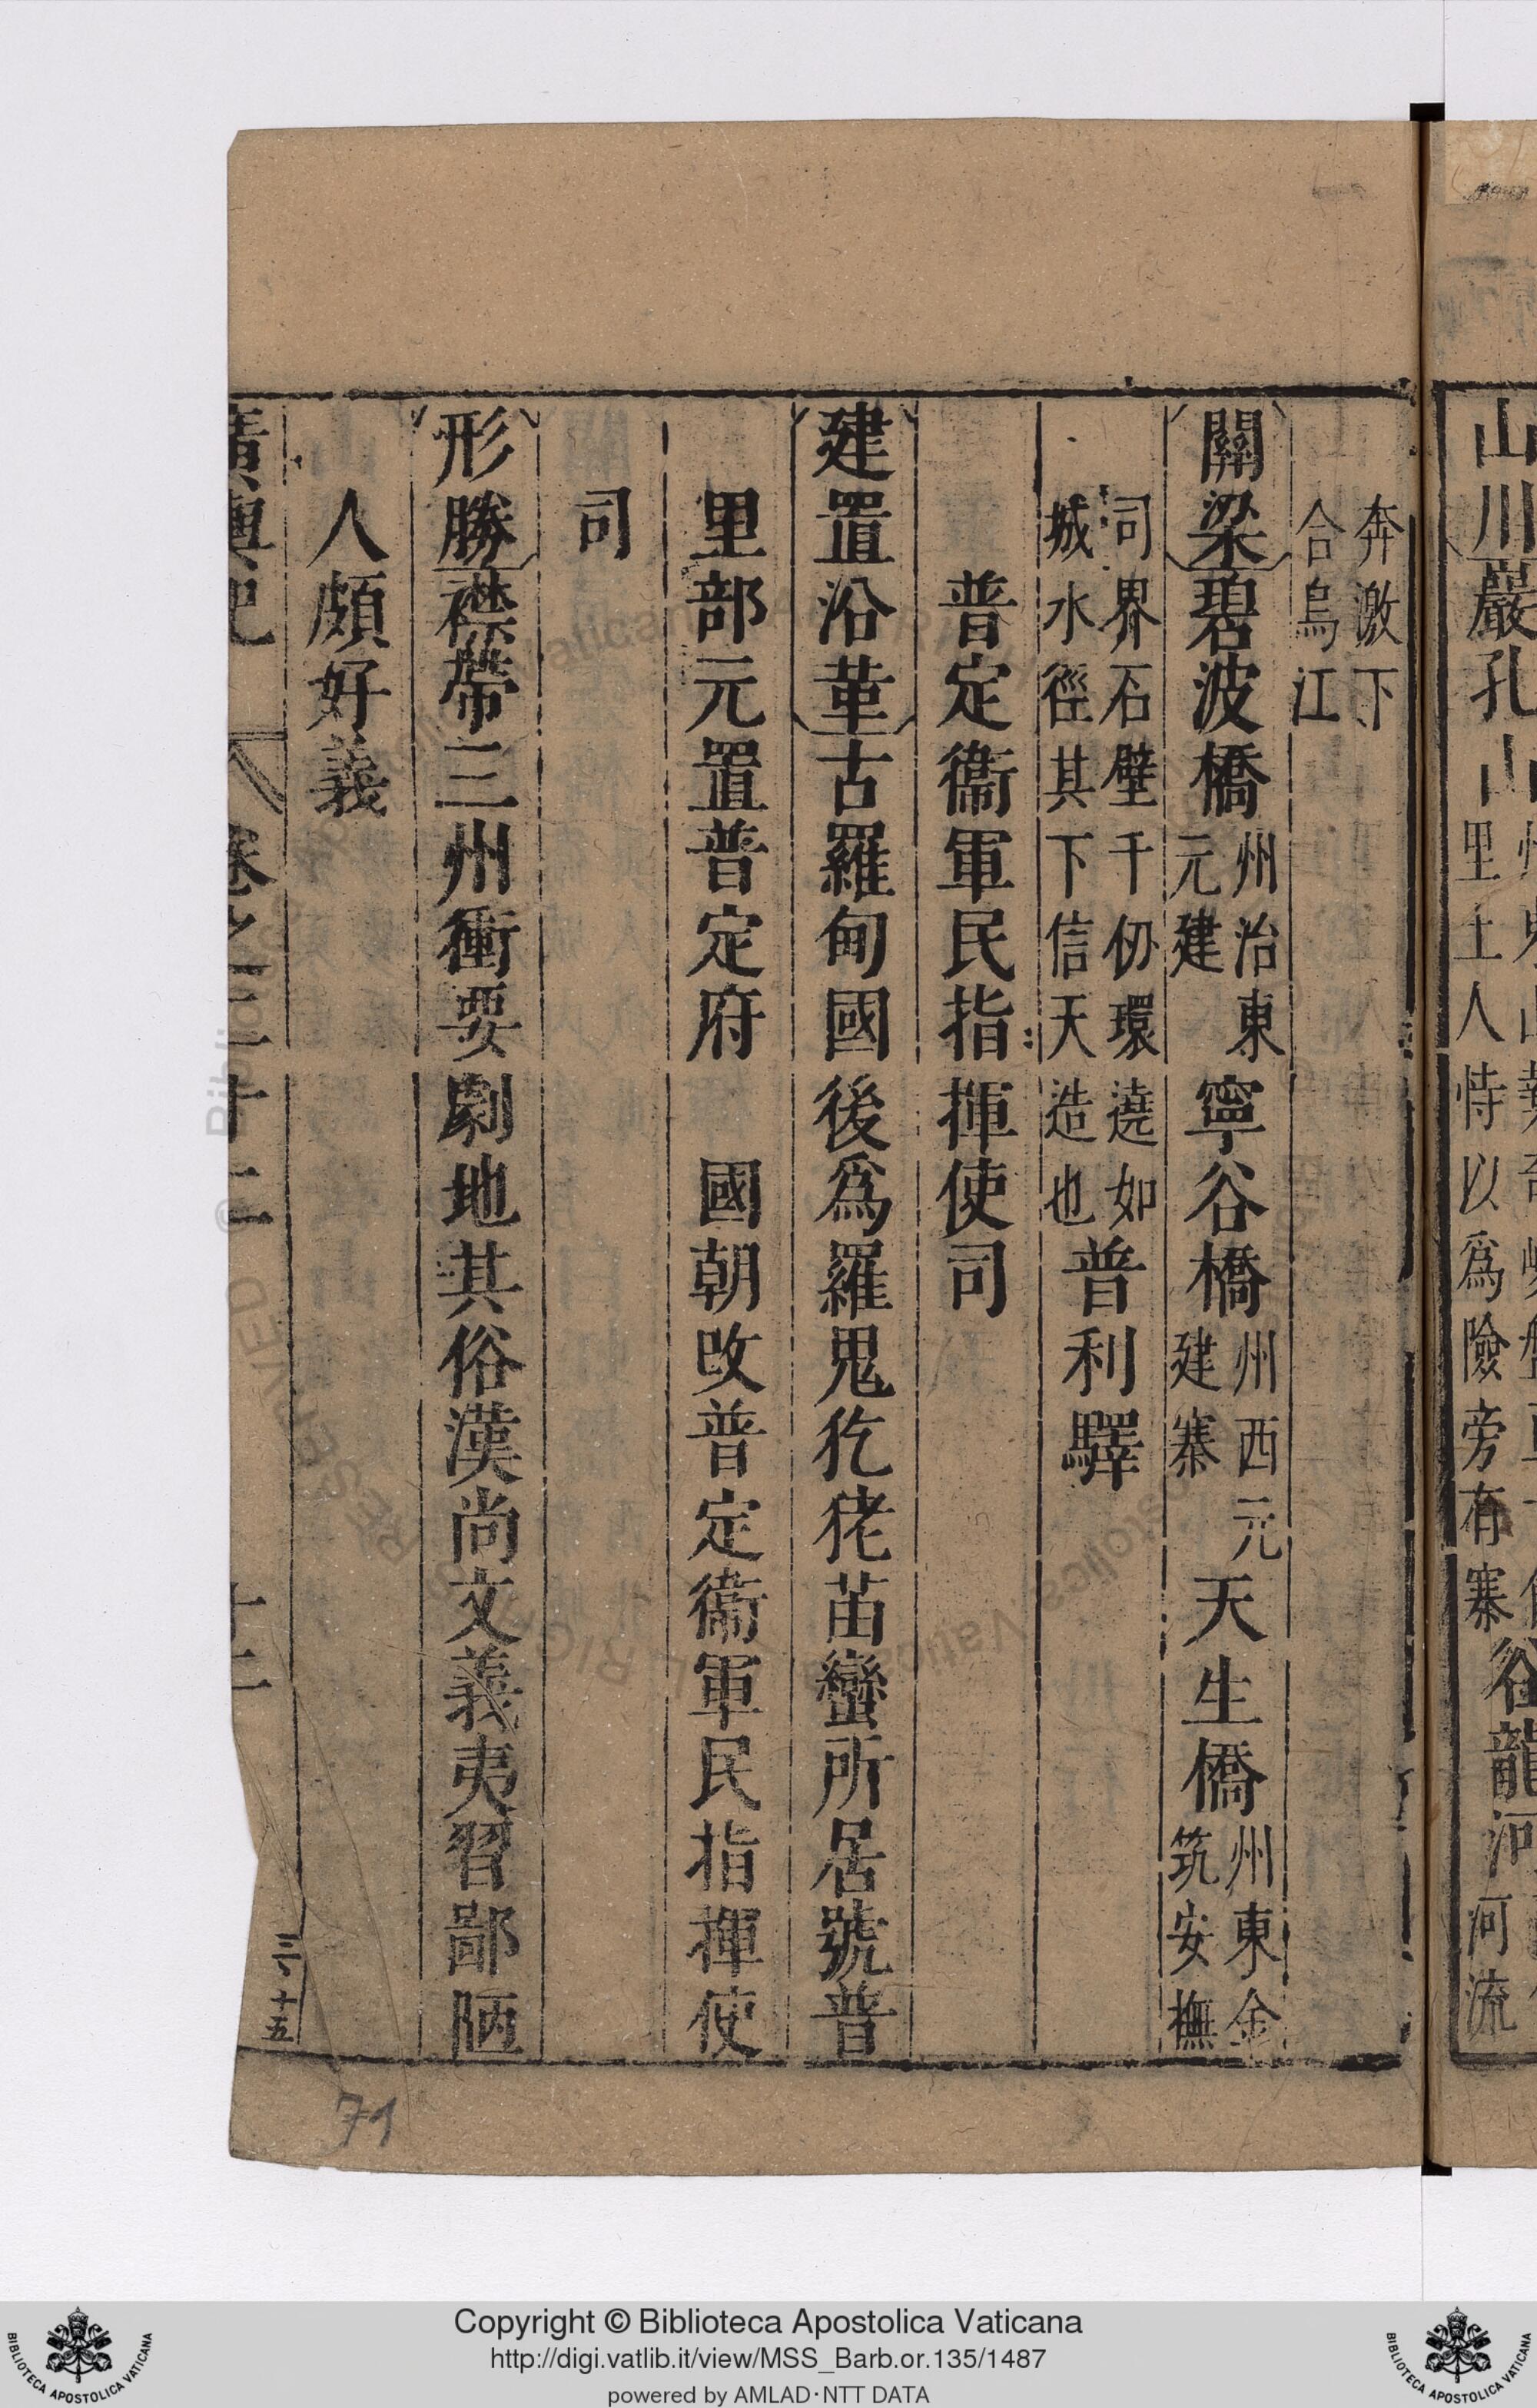 山川巖孔山
里土人恃以爲險旁有寨
谷龍河
河流
奔激下
合烏江
關梁碧波橋
州治東
元建
寧谷橋
州西元
建寨
天生橋
州東金
筑安撫
司界石壁千仞環遶如
城水徑其下信天造也
普利驛
普定衞軍民指揮使司
建置沿革古羅甸國後爲羅鬼犵狫苗蠻所居號普
里部元置普定府 國朝改普定衞軍民指揮使
司
形勝襟帶三州衝要劇地其俗漢尚文義夷習鄙陋
人頗好義
廣輿記 卷之二十二 十二
三十五
71
Copyright © Biblioteca Apostolica Vaticana
http://digi.vatlib.it/view/MSS_Barb.or.135/1487
powered by AMLAD·NTT DATA
BIBLIOTECA APOSTOLICA VATICANA
BIBLIOTECA APOSTOLICA VATICANA